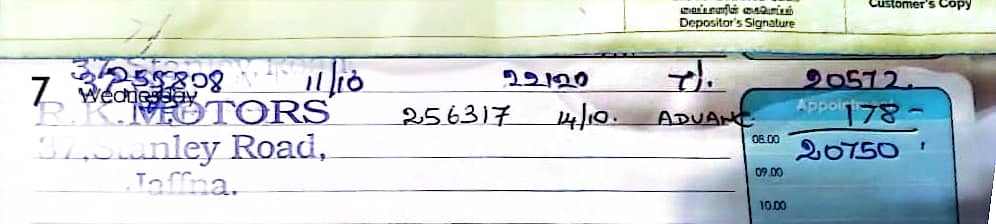 வைப்பாளரின் கையொப்பம்
Depositor's Signature
Customer's Copy
7 Wednesday
11/10 22120 7%. 20572.
R.K. MOTORS 256317 14/10. ADVANC 178-
Appoint
37, Stanley Road,
08.00 20750
Jaffna.
09.00
10.00